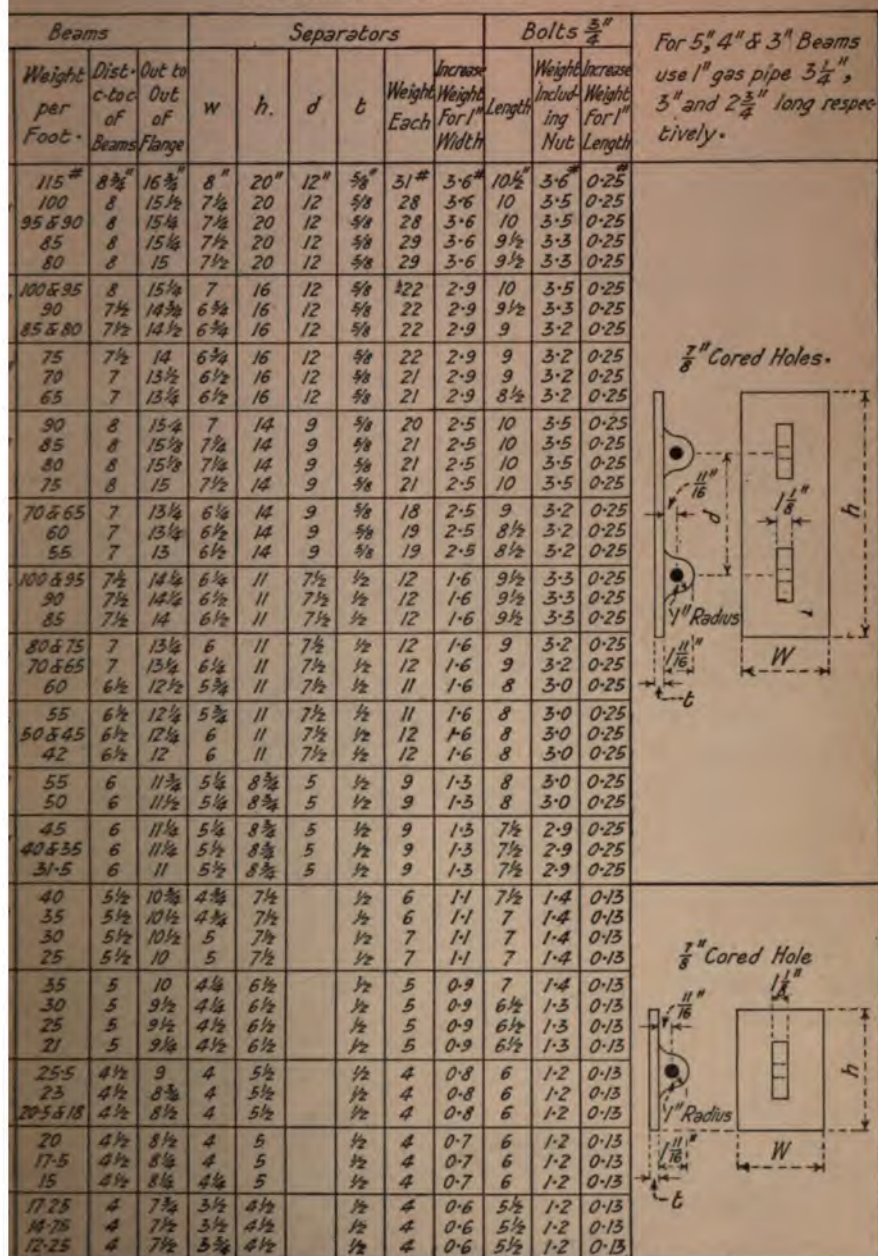 Beams Separators Bolts 3/4"
Weight per Foot. Dist. c-to-c of Beams Out to Out of Flange w h. d t Weight Each Increase Weight For 1" Width Length Weight Includ- ing Nut Increase Weight For 1" Length
For 5," 4" & 3" Beams
use 1" gas pipe 3 1/4",
3" and 2 3/4" long respec-
tively.
115# 8 3/4" 16 3/4" 8" 20" 12" 5/8" 31# 3.6# 10 1/2" 3.6# 0.25#
100 8 15 1/2 7 1/4 20 12 5/8 28 3.6 10 3.5 0.25
95 & 90 8 15 1/4 7 1/4 20 12 5/8 28 3.6 10 3.5 0.25
85 8 15 1/4 7 1/2 20 12 5/8 29 3.6 9 1/2 3.3 0.25
80 8 15 7 1/2 20 12 5/8 29 3.6 9 1/2 3.3 0.25
100 & 95 8 15 1/4 7 16 12 5/8 22 2.9 10 3.5 0.25
90 7 1/2 14 3/4 6 3/4 16 12 5/8 22 2.9 9 1/2 3.3 0.25
85 & 80 7 1/2 14 1/2 6 3/4 16 12 5/8 22 2.9 9 3.2 0.25
75 7 1/2 14 6 3/4 16 12 5/8 22 2.9 9 3.2 0.25
70 7 13 1/2 6 1/2 16 12 5/8 21 2.9 9 3.2 0.25
65 7 13 1/4 6 1/2 16 12 5/8 21 2.9 8 1/2 3.2 0.25
90 8 15.4 7 14 9 5/8 20 2.5 10 3.5 0.25
85 8 15 1/8 7 1/4 14 9 5/8 21 2.5 10 3.5 0.25
80 8 15 1/8 7 1/4 14 9 5/8 21 2.5 10 3.5 0.25
75 8 15 7 1/2 14 9 5/8 21 2.5 10 3.5 0.25
70 & 65 7 13 1/4 6 1/4 14 9 5/8 18 2.5 9 3.2 0.25
60 7 13 1/4 6 1/2 14 9 5/8 19 2.5 8 1/2 3.2 0.25
55 7 13 6 1/2 14 9 5/8 19 2.5 8 1/2 3.2 0.25
100 & 95 7 1/2 14 1/4 6 1/4 11 7 1/2 1/2 12 1.6 9 1/2 3.3 0.25
90 7 1/2 14 1/4 6 1/2 11 7 1/2 1/2 12 1.6 9 1/2 3.3 0.25
85 7 1/2 14 6 1/2 11 7 1/2 1/2 12 1.6 9 1/2 3.3 0.25
80 & 75 7 13 1/4 6 11 7 1/2 1/2 12 1.6 9 3.2 0.25
70 & 65 7 13 1/4 6 1/4 11 7 1/2 1/2 12 1.6 9 3.2 0.25
60 6 1/2 12 1/2 5 3/4 11 7 1/2 1/2 11 1.6 8 3.0 0.25
55 6 1/2 12 1/4 5 3/4 11 7 1/2 1/2 11 1.6 8 3.0 0.25
50 & 45 6 1/2 12 1/4 6 11 7 1/2 1/2 12 1.6 8 3.0 0.25
42 6 1/2 12 6 11 7 1/2 1/2 12 1.6 8 3.0 0.25
55 6 11 3/4 5 1/4 8 3/4 5 1/2 9 1.3 8 3.0 0.25
50 6 11 1/2 5 1/4 8 3/4 5 1/2 9 1.3 8 3.0 0.25
45 6 11 1/4 5 1/4 8 3/4 5 1/2 9 1.3 7 1/2 2.9 0.25
40 & 35 6 11 1/4 5 1/2 8 3/4 5 1/2 9 1.3 7 1/2 2.9 0.25
31.5 6 11 5 1/2 8 3/4 5 1/2 9 1.3 7 1/2 2.9 0.25
40 5 1/2 10 3/4 4 3/4 7 1/2 1/2 6 1.1 7 1/2 1.4 0.13
35 5 1/2 10 1/2 4 3/4 7 1/2 1/2 6 1.1 7 1.4 0.13
30 5 1/2 10 1/2 5 7 1/2 1/2 7 1.1 7 1.4 0.13
25 5 1/2 10 5 7 1/2 1/2 7 1.1 7 1.4 0.13
35 5 10 4 1/4 6 1/2 1/2 5 0.9 7 1.4 0.13
30 5 9 1/2 4 1/4 6 1/2 1/2 5 0.9 6 1/2 1.3 0.13
25 5 9 1/2 4 1/2 6 1/2 1/2 5 0.9 6 1/2 1.3 0.13
21 5 9 1/4 4 1/2 6 1/2 1/2 5 0.9 6 1/2 1.3 0.13
25.5 4 1/2 9 4 5 1/2 1/2 4 0.8 6 1.2 0.13
23 4 1/2 8 3/4 4 5 1/2 1/2 4 0.8 6 1.2 0.13
20.5 & 18 4 1/2 8 1/2 4 5 1/2 1/2 4 0.8 6 1.2 0.13
20 4 1/2 8 1/2 4 5 1/2 4 0.7 6 1.2 0.13
17.5 4 1/2 8 1/4 4 5 1/2 4 0.7 6 1.2 0.13
15 4 1/2 8 1/4 4 1/4 5 1/2 4 0.7 6 1.2 0.13
17.25 4 7 3/4 3 1/2 4 1/2 1/2 4 0.6 5 1/2 1.2 0.13
14.75 4 7 1/2 3 1/2 4 1/2 1/2 4 0.6 5 1/2 1.2 0.13
12.25 4 7 1/2 3 3/4 4 1/2 1/2 4 0.6 5 1/2 1.2 0.13
7/8" Cored Holes.
11/16"
d
1 1/8"
h
1" Radius
1 11/16"
W
t
7/8" Cored Hole
1 1/8"
11/16"
h
1" Radius
1 11/16"
W
t